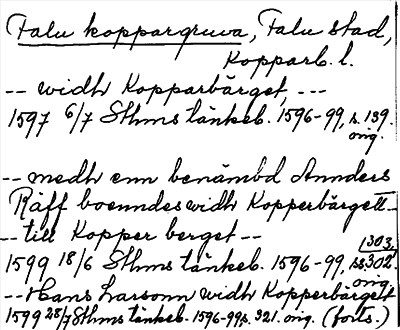 Falu koppargruva, Falu stad,
Kopparb. l.
-- widh Kopparbärget, ---
1597 6/7 Sthms tänkeb. 1596-99, s. 139.
orig.
-- medh enn benämbd Annders
Räff boenndes widh Kopperbärgett --
-- till Kopper berget --
1599 18/6 Sthms tänkeb. 1596-99, ss. 302.
303,
orig.
-- Hans Larsonn widh Kopperbärgett
1599 28/7 Sthms tänkeb. 1596-99, s. 321. orig. (forts.)